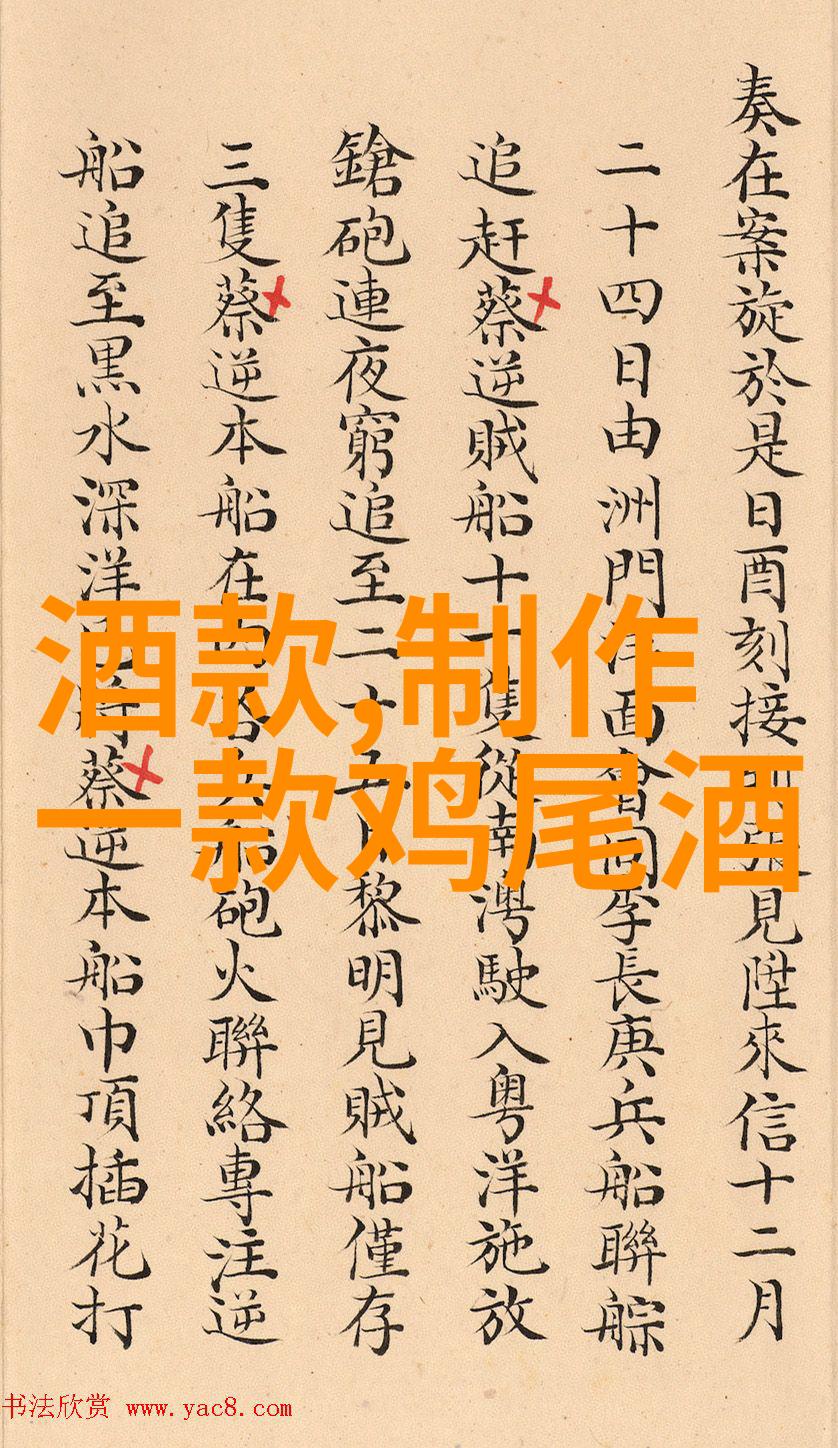 奏在案旋於是日酉刻接到張見陞來信十二月
二十四日由洲門洋面會同李長庚兵船聯䑸
追赶蔡逆賊船十一隻從南澳駛入粤洋施放
鎗砲連夜窮追至二十五日黎明見賊船僅存
三隻蔡逆本船在內各兵船砲火聯絡專注逆
船追至黒水深洋已將蔡逆本船巾頂插花打
酒款,制作
一款鸡尾酒
书法欣赏 www.yac8.com